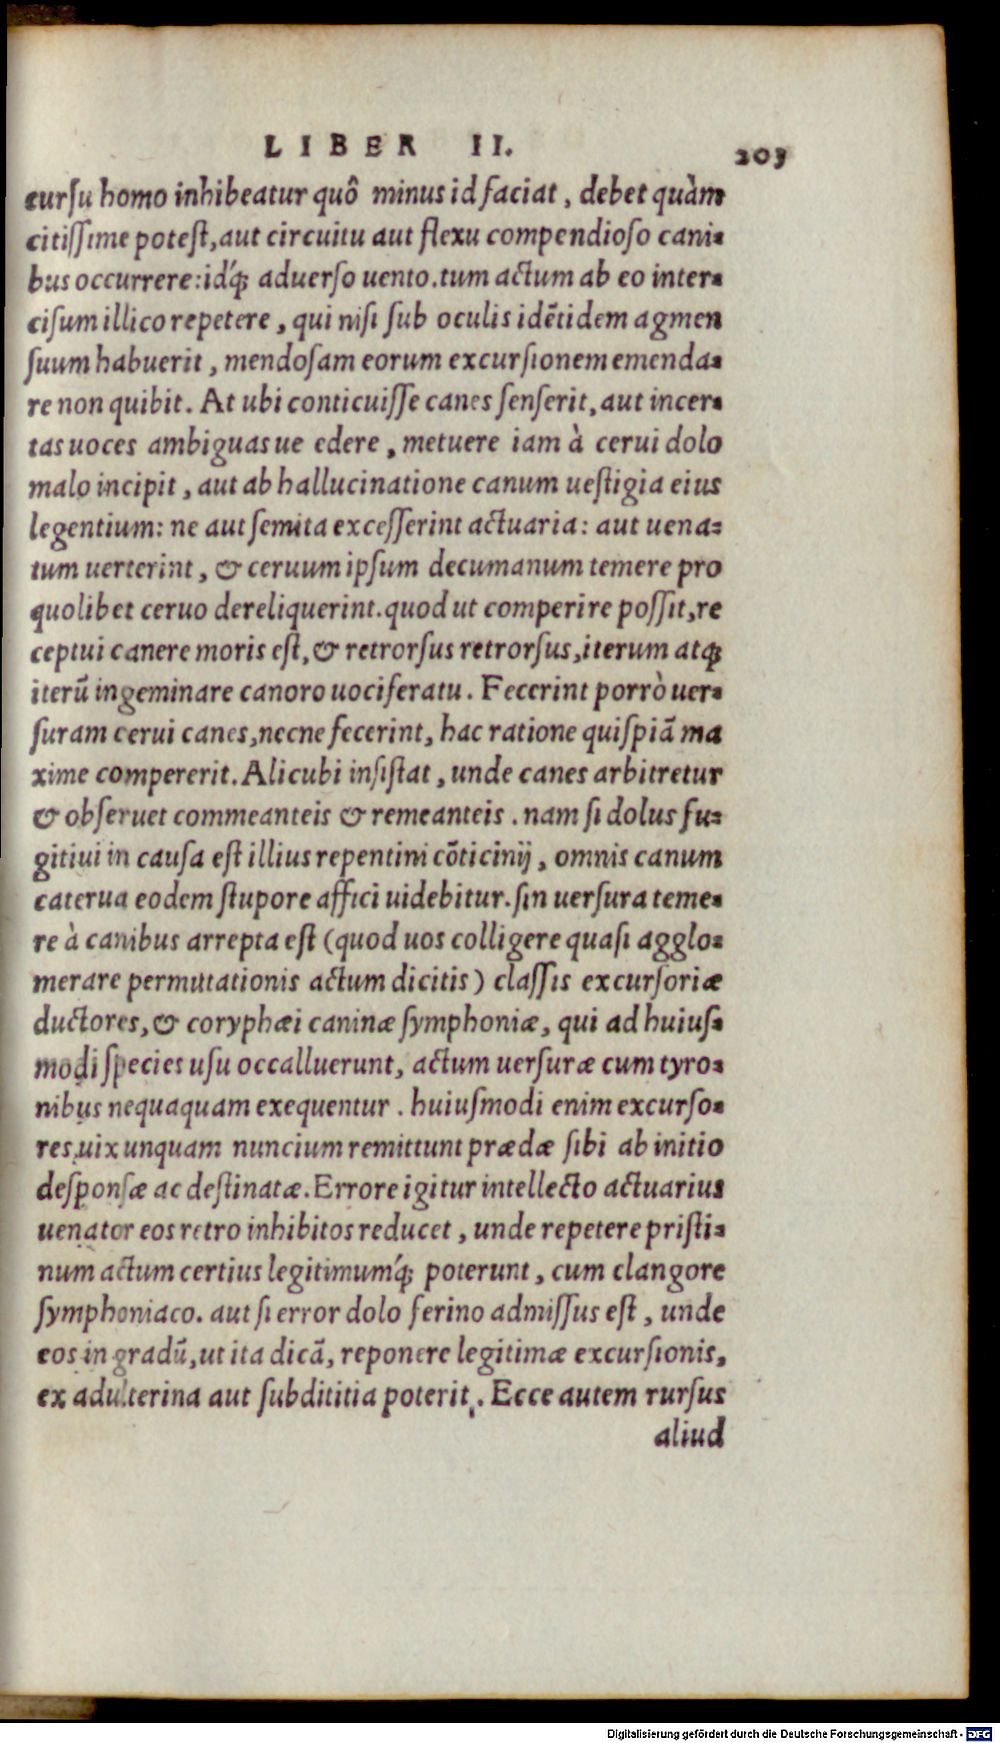 LIBER II. 203
cursu homo inhibeatur quô minus id faciat, debet quàm
citissime potest, aut circuitu aut flexu compendioso cani-
bus occurrere: id'q; aduerso uento. tum actum ab eo inter-
cisum illico repetere, qui nisi sub oculis idẽtidem agmen
suum habuerit, mendosam eorum excursionem emenda-
re non quibit. At ubi conticuisse canes senserit, aut incer-
tas uoces ambiguasue edere, metuere iam à cerui dolo
malo incipit, aut ab hallucinatione canum uestigia eius
legentium: ne aut semita excesserint actuaria: aut uena-
tum uerterint, & ceruum ipsum decumanum temere pro
quolibet ceruo dereliquerint. quod ut comperire possit, re
ceptui canere moris est, & retrorsus retrorsus, iterum atq;
iterũ ingeminare canoro uociferatu. Fecerint porrò uer-
suram cerui canes, necne fecerint, hac ratione quispiã ma
xime compererit. Alicubi insistat, unde canes arbitretur
& obseruet commeanteis & remeanteis. nam si dolus fu-
gitiui in causa est illius repentini cõticinij, omnis canum
caterua eodem stupore affici uidebitur. sin uersura teme-
re à canibus arrepta est (quod uos colligere quasi agglo-
merare permutationis actum dicitis) classis excursoriæ
ductores, & coryphæi caninæ symphoniæ, qui ad huius-
modi species usu occalluerunt, actum uersuræ cum tyro-
nibus nequaquam exequentur. huiusmodi enim excurso-
res uix unquam nuncium remittunt prædæ sibi ab initio
desponsæ ac destinatæ. Errore igitur intellecto actuarius
uenator eos retro inhibitos reducet, unde repetere pristi-
num actum certius legitimum'q; poterunt, cum clangore
symphoniaco. aut si error dolo ferino admissus est, unde
eos in gradũ, ut ita dicã, reponere legitimæ excursionis,
ex adulterina aut subdititia poterit. Ecce autem rursus
aliud
Digitalisierung gefördert durch die Deutsche Forschungsgemeinschaft - DFG